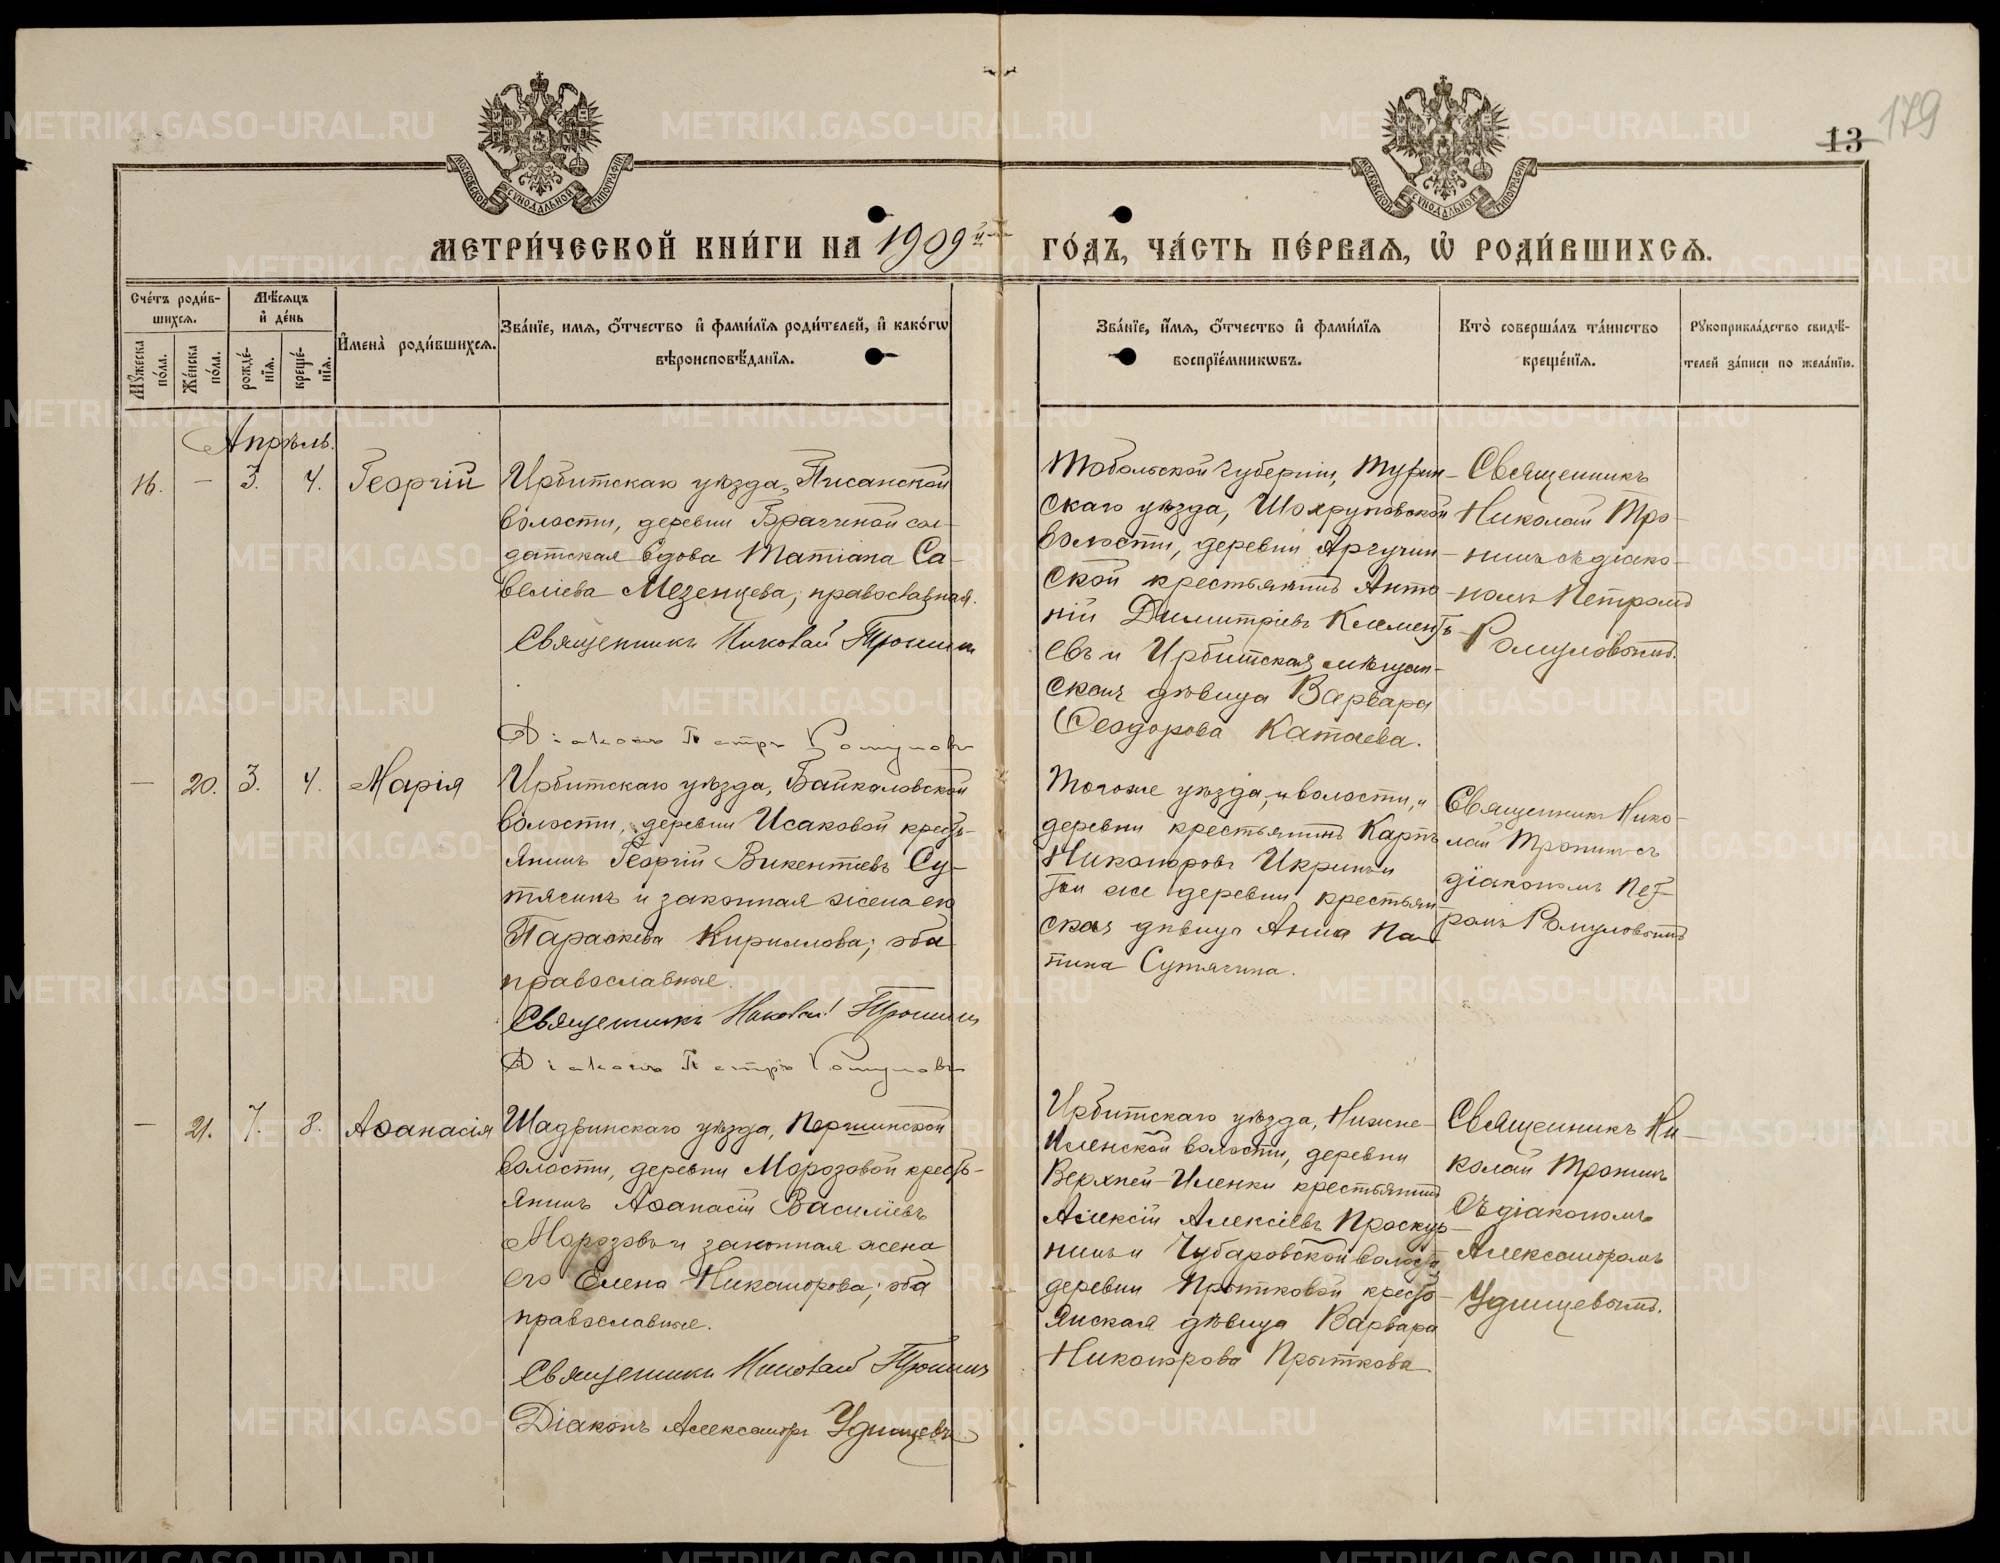 179
13
МЕТРИ́ЧЕСКОЙ КНИ́ГИ НА 1909й ГО́ДЪ, ЧА́СТЬ ПЕ́РВАѦ, Ѡ҆ РОДИ́ВШИХСѦ.
Сче́тъ роди́в-
шихсѧ.
Мѣ́сѧцъ
и҆ де́нь
И҆мена̀ роди́вшихсѧ.
Зва́нїе, имѧ, ѻ҆́тчество и҆ фами́лїѧ роди́телей, и҆ како́гѡ
вѣроисповѣ́данїѧ.
Зва́нїе, и҆́мѧ, ѻ҆́тчество и҆ фами́лїѧ
воспрїе́мникѡвъ.
Кто̀ соверша́лъ та́инство
креще́нїѧ.
Рꙋкоприкла́дство свидѣ́-
телей за́писи по жела́нїю.
Мꙋ́жеска
по́ла.
Же́нска
по́ла.
рожде́-
нїѧ.
креще́-
нїѧ.
Апрѣль.
16. — 3. 4. Георгій
Ирбитскаго уѣзда, Писанской
волости, деревни Брагиной сол-
датская вдова Татіана Са-
веліева Мезенцева, православная.
Священникъ Николай Тронинъ
Діаконъ Петръ Ромуловъ
Тобольской губерніи, Турин-
скаго уѣзда,
волости, деревни
ской крестьянинъ Анто-
ній Димитріевъ Клементь-
евъ и Ирбитская мѣщан-
ская дѣвица Варвара
Ѳеодорова Катаева.
Священникъ
Николай Тро-
нинъ съ діако-
номъ Петромъ
Ромуловымъ.
— 20. 3. 4. Марія
Ирбитскаго уѣзда, Байкаловской
волости, деревни Исаковой кресть-
янинъ Георгій Викентіевъ Су-
тягинъ и законная жена его
Параскева Кириллова; оба
православные.
Священникъ Николай Тронинъ
Діаконъ Петръ Ромуловъ
Тогоже уѣзда, и волости, и
деревни крестьянинъ Карпъ
Никаноровъ Икринъ и
той же деревни крестьян
ская дѣвица Анна
Сутягина.
Священникъ Нико-
лай Тронинъ съ
діакономъ Пет-
ромъ Ромуловымъ
— 21. 7. 8. Аѳанасія
Шадринскаго уѣзда, Першинской
волости, деревни Морозовой кресть-
янинъ Аѳанасій Василіевъ
Морозовъ и законная жена
его Елена Никанорова; оба
православные.
Священникъ Николай Тронинъ
Діаконъ Александръ Удинцевъ
Ирбитскаго уѣзда, Нижне-
Иленской волости, деревни
Верхней-Иленки крестьянинъ
Алексій Алексіевъ Проскур-
нинъ и Чубаровской волости
деревни Прытковой кресть-
янская дѣвица Варвара
Никанорова Прыткова
Священникъ Ни-
колай Тронинъ
съ діакономъ
Александромъ
Удинцевымъ.
METRIKI.GASO-URAL.RU